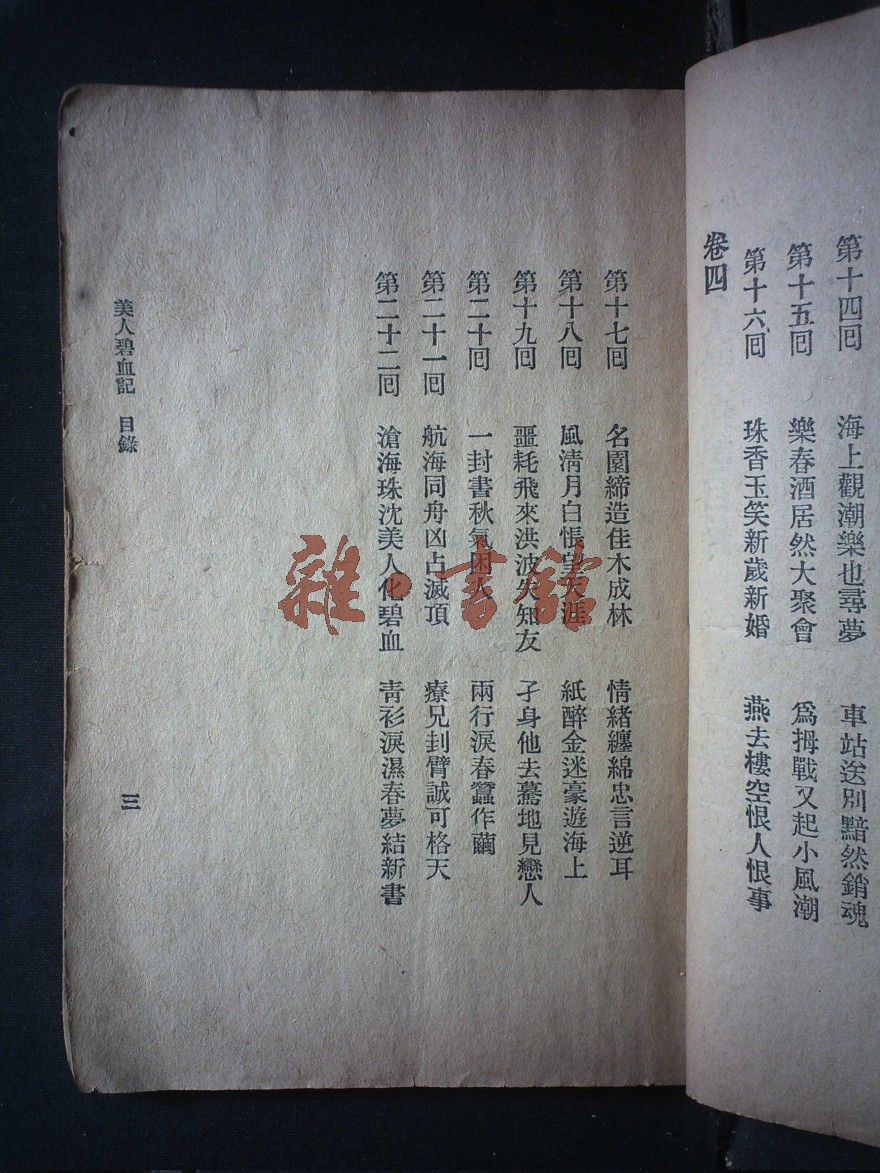 第十四回 海上觀潮樂也尋夢 車站送別黯然銷魂
第十五回 樂春酒居然大聚會 爲拇戰又起小風潮
第十六回 珠香玉笑新歲新婚 燕去樓空恨人恨事
卷四
第十七回 名園締造佳木成林 情緒纏綿忠言逆耳
第十八回 風淸月白悵望天涯 紙醉金迷豪遊海上
第十九回 噩耗飛來洪波失知友 孑身他去驀地見戀人
第二十回 一封書秋氣困人 兩行淚春蠶作繭
第二十一回 航海同舟凶占滅頂 療兄刲臂誠可格天
第二十二回 滄海珠沈美人化碧血 靑衫淚濕春夢結新書
美人碧血記 目錄
三
雜·書館